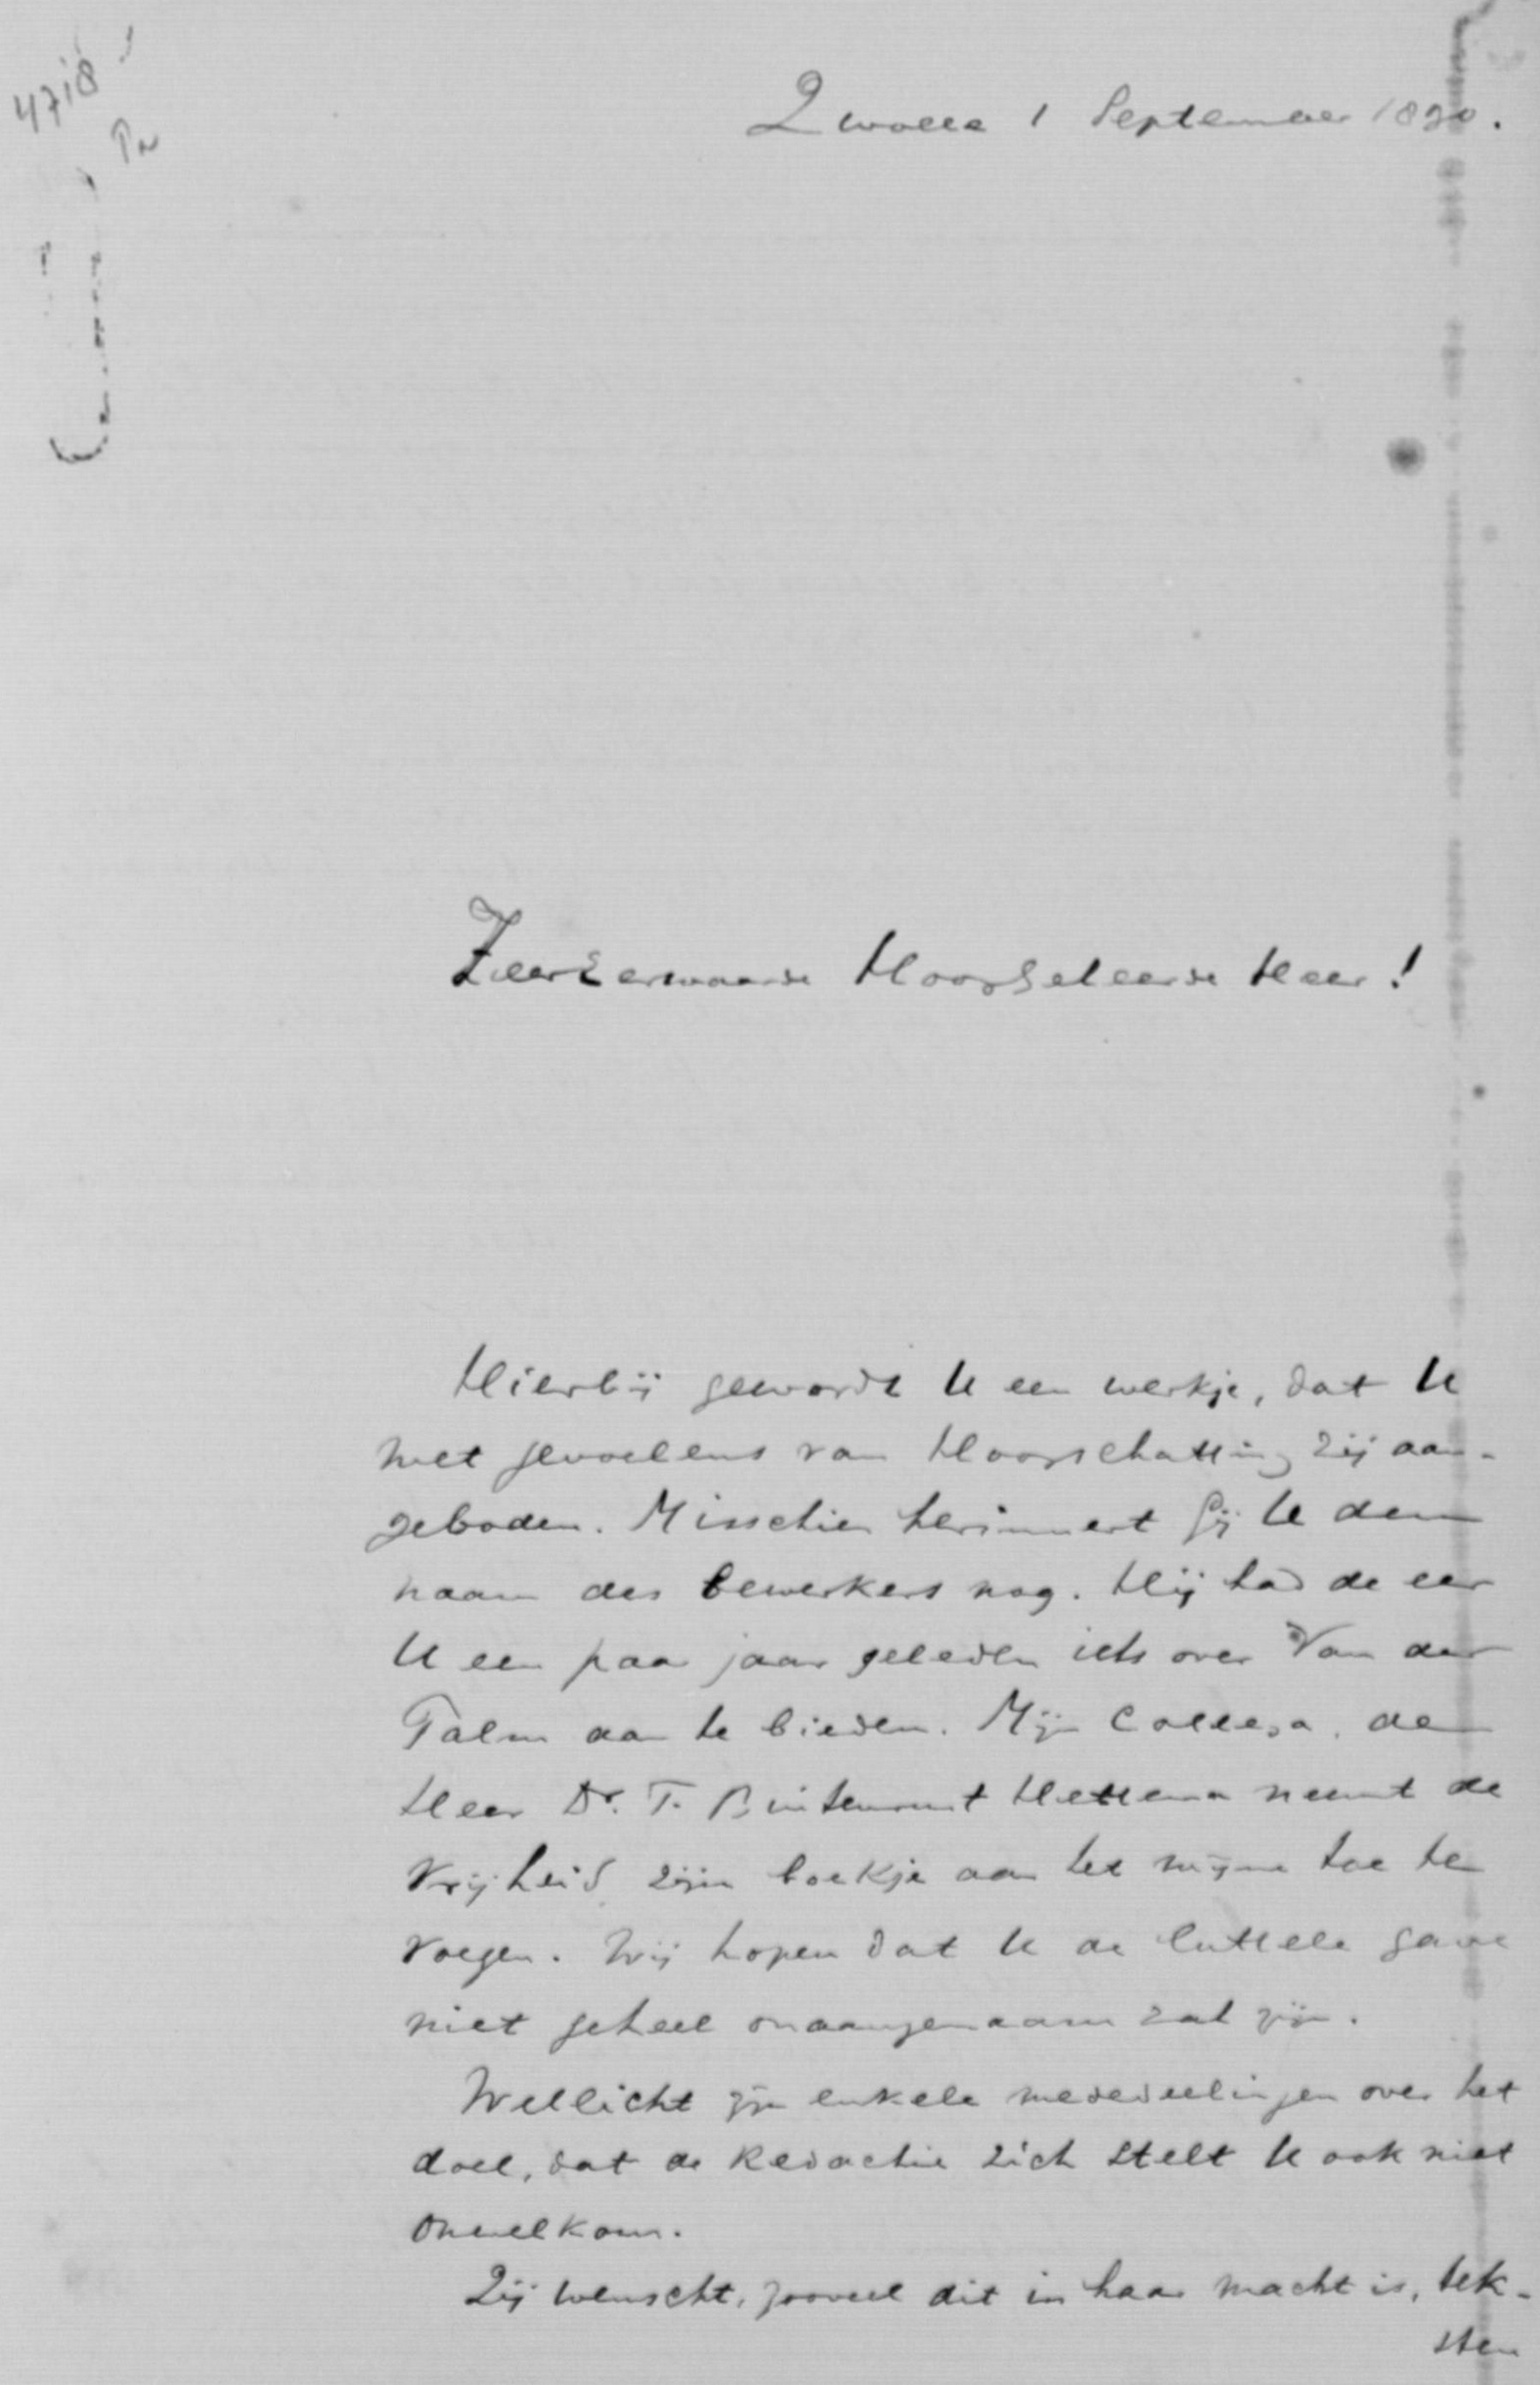 4718
Zwolle 1 September 1890.
ZeerEerwaarde Hooggeleerde Heer!
Hierbij gewordt U een werkje, dat U
met gevoelens van Hoogschatting zij aan-
geboden. Misschien herinnert Gij U den
naam des bewerkers nog. Hij had de eer
U een paar jaar geleden iets over Van der
Palm aan te bieden. Mijn Collega, de
Heer Dr. F. Buitenrust Hettema neemt de
vrijheid zijn boekje aan het mijne toe te
voegen. Wij hopen dat U de luttele gave
niet geheel onaangenaam zal zijn.
Wellicht zijn enkele mededeelingen over het
doel, dat de Redactie zich stelt U ook niet
onwelkom.
Zij wenscht, zooveel dit in haar macht is, tek-
sten